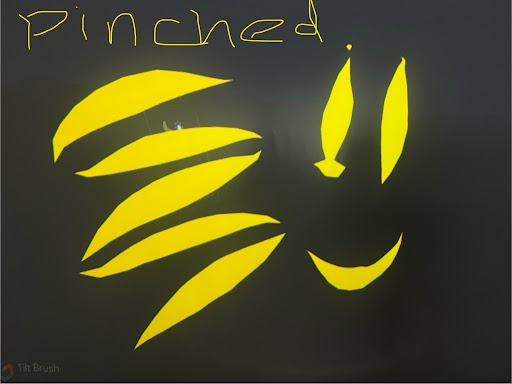 pinched
Tilt Brush